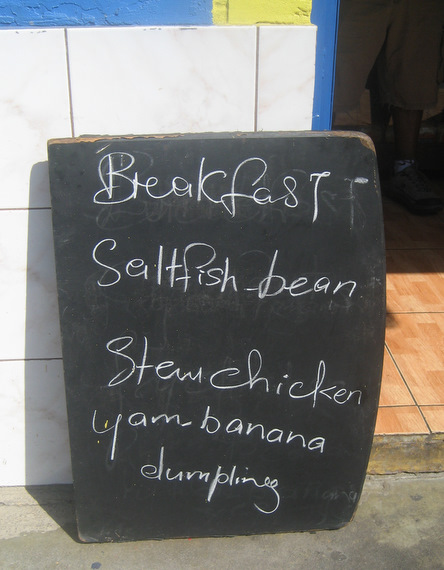 Breakfast
Saltfish-bean
Stew chicken
yam-banana
dumpling